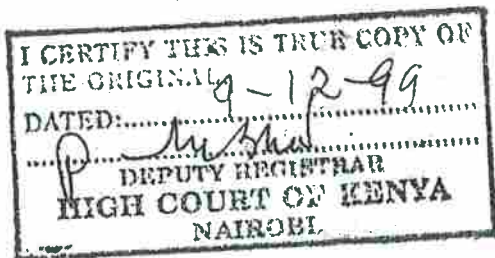 I CERTIFY THIS IS TRUE COPY OF
THE ORIGINAL
9-12-99
DATED:
DEPUTY REGISTRAR
HIGH COURT OF KENYA
NAIROBI.